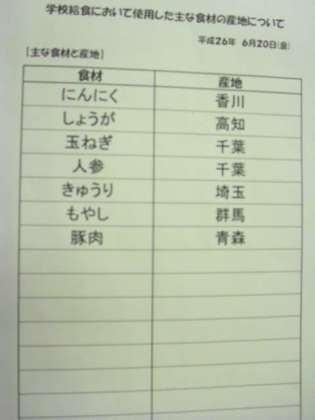 学校給食において使用した主な食材の産地について
平成26年 6月20日(金)
[主な食材と産地]
食材 産地
にんにく 香川
しょうが 高知
玉ねぎ 千葉
人参 千葉
きゅうり 埼玉
もやし 群馬
豚肉 青森